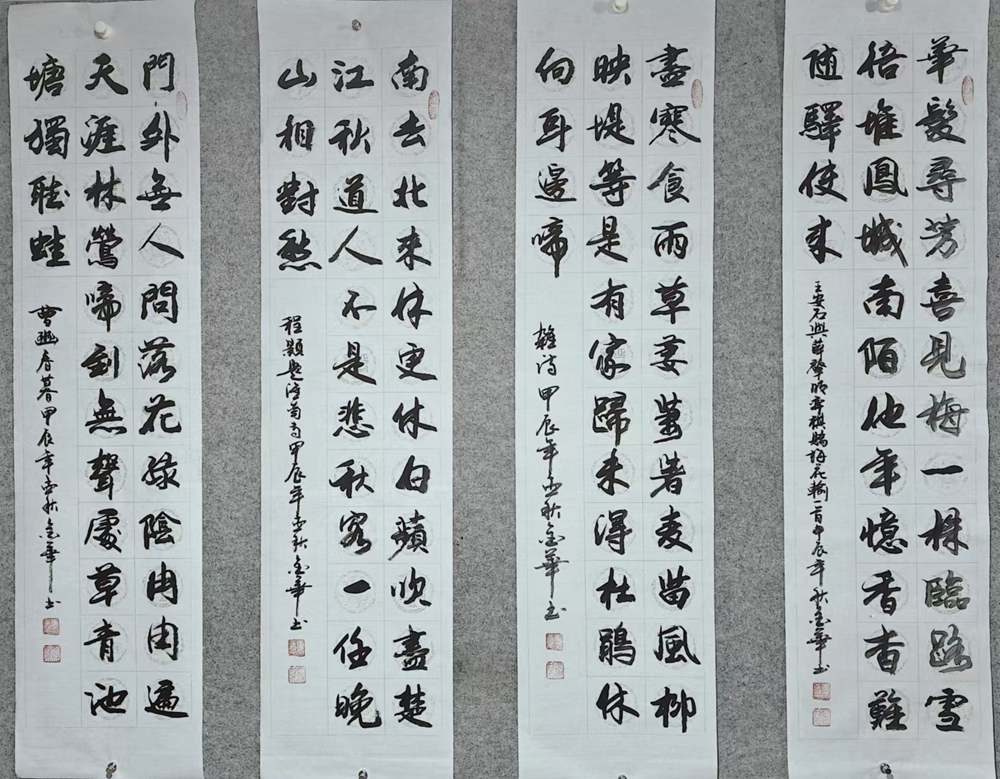 華髮尋芳喜見梅一株臨路雪
倍堆鳳城南陌他年憶香杳難
随驛使来
王安石與薛肇明弈棋賭梅花輸一首甲辰年秋金華书
盡寒食雨草萋萋著麦苗風柳
映堤等是有家歸未得杜鵑休
向耳邊啼
雜诗甲辰年孟秋金華书
南去北来休更休白蘋吹盡楚
江秋道人不是悲秋客一任晚
山相對愁
程颢题淮南寺甲辰年孟秋金華书
門外無人問落花绿陰冉冉遍
天涯林鶯啼到無聲處草青池
塘獨聽蛙
曹豳春暮甲辰年孟秋金華书